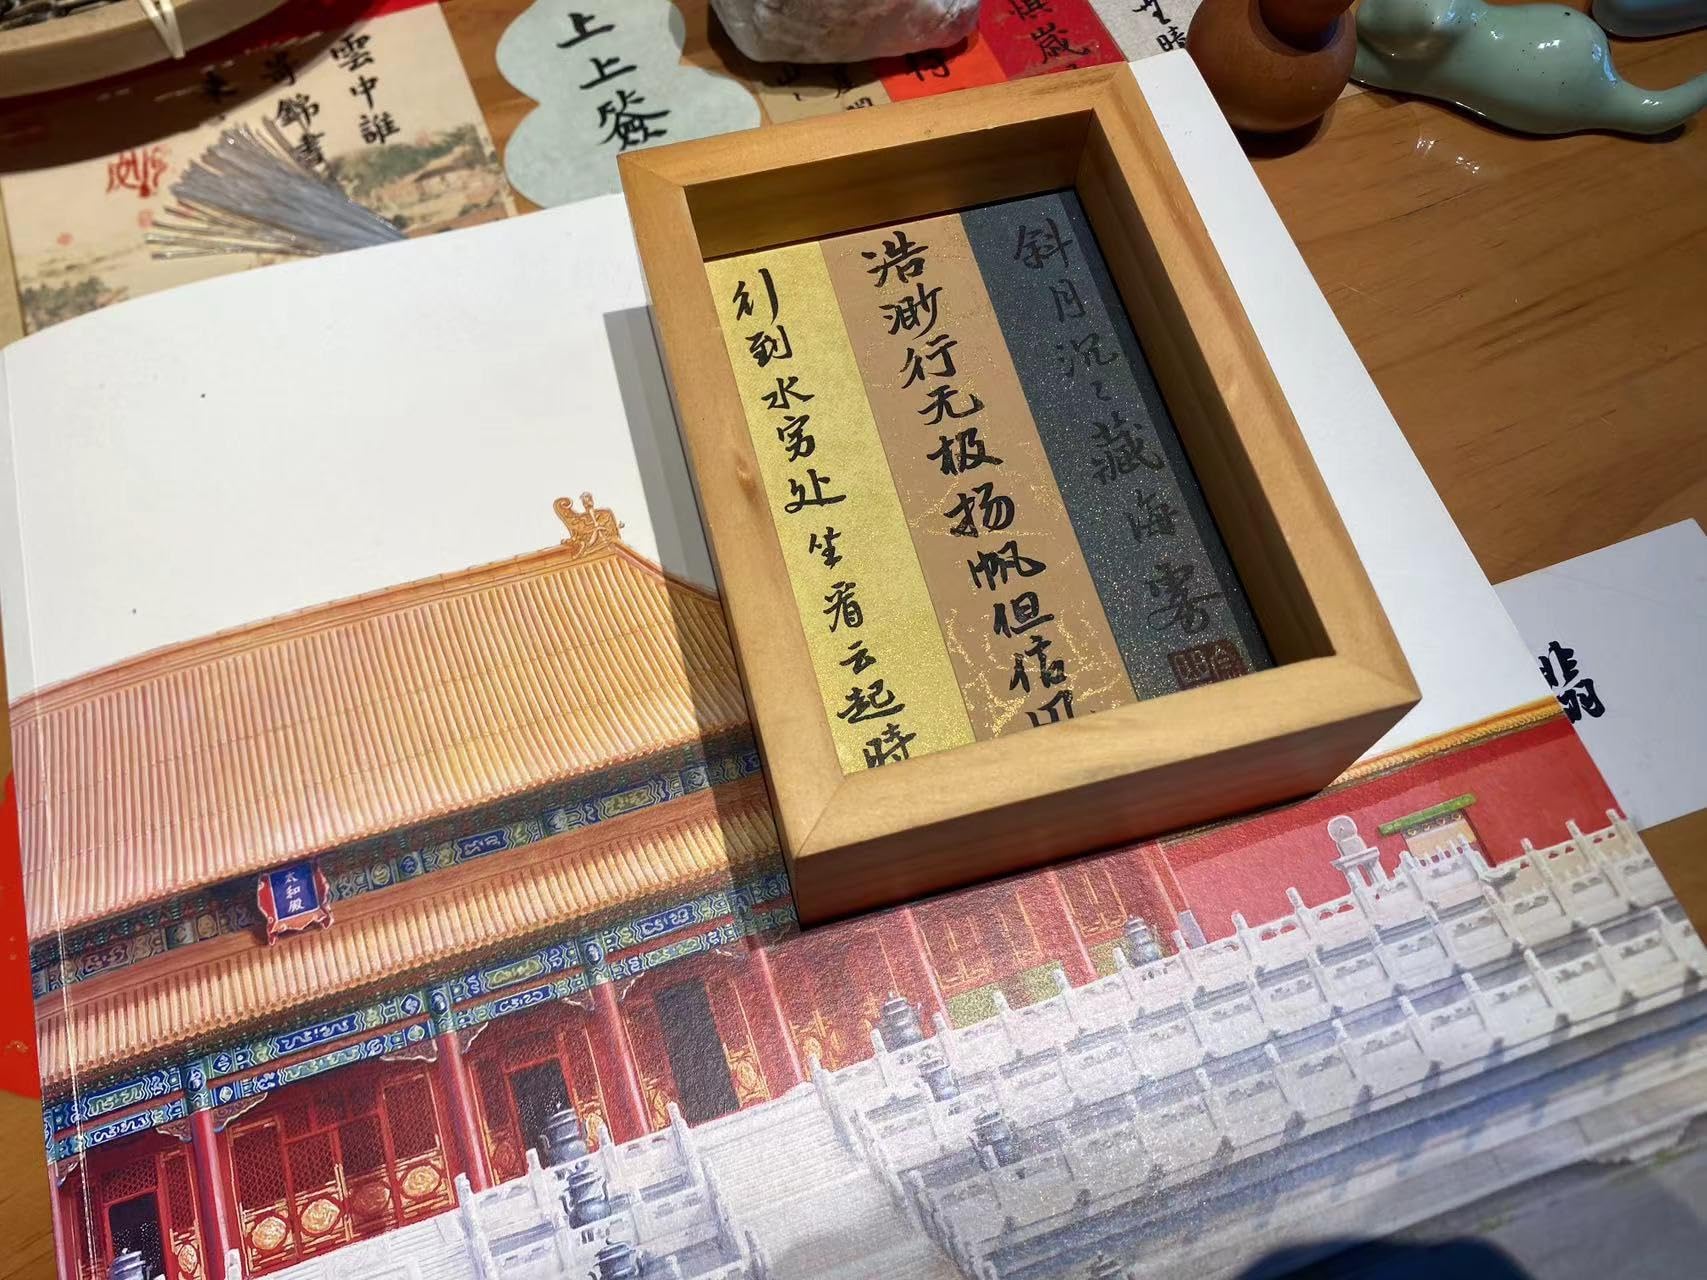 雲中誰
寄錦書
上上簽
斜月沉々藏海雾
浩渺行无极扬帆但信
行到水穷处坐看云起時
太和殿
翡